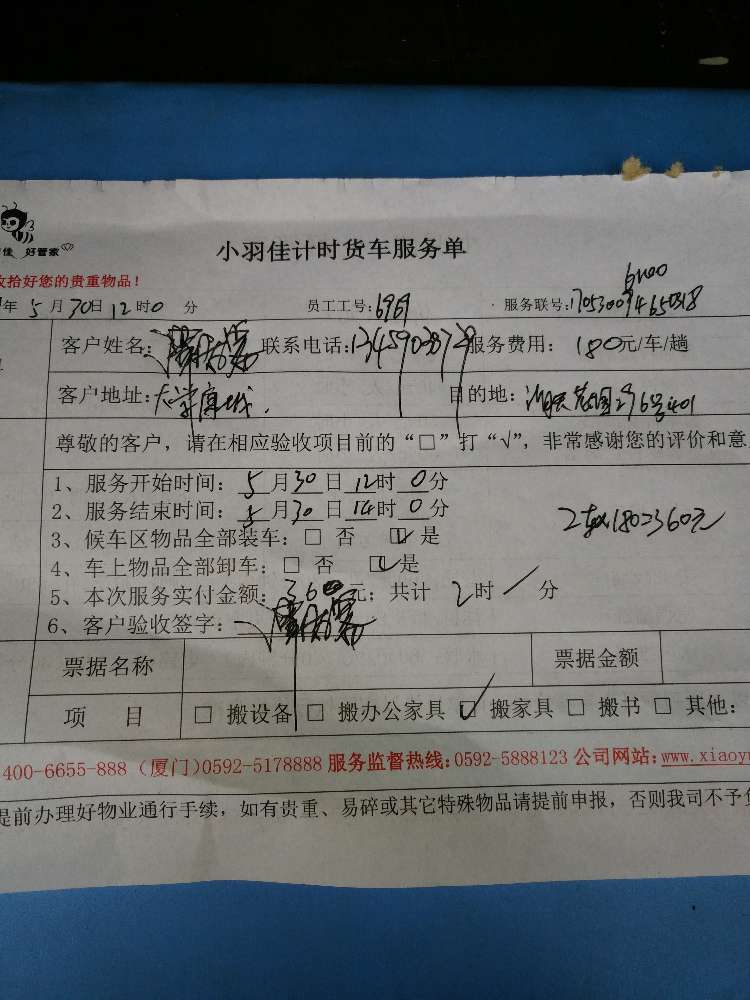 佳 好管家
小羽佳计时货车服务单
收拾好您的贵重物品！
年 5 月 30日 12 时0 分 员工工号: 6969 服务联号:
客户姓名: 联系电话: 服务费用： 180元/车/趟
客户地址: 目的地:
尊敬的客户，请在相应验收项目前的“□”打“√”，非常感谢您的评价和意
1、服务开始时间: 5 月 30 日 12时 0分
2、服务结束时间: 5 月 30 日 14时 0分
3、候车区物品全部装车: □ 否 ☑ 是
4、车上物品全部卸车: □ 否 ☑ 是
5、本次服务实付金额: 360 元; 共计 2时 / 分
6、客户验收签字:
票据名称 票据金额
项 目 □ 搬设备 □ 搬办公家具 ☑ 搬家具 □ 搬书 □ 其他:
400-6655-888（厦门)0592-5178888 服务监督热线:0592-5888123 公司网站:www.xiaoy
提前办理好物业通行手续，如有贵重、易碎或其它特殊物品请提前申报，否则我司不予